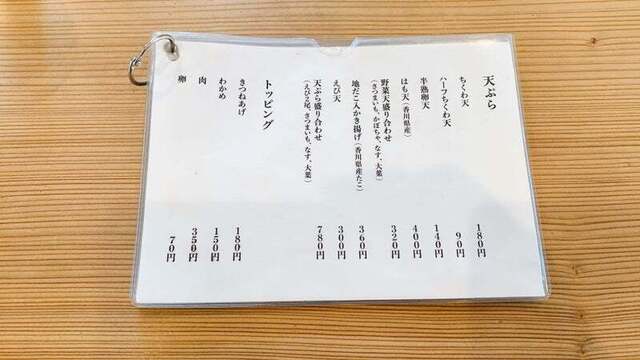 天ぷら
ちくわ天 180円
ハーフちくわ天 90円
半熟卵天 140円
はも天（香川県産） 400円
野菜天盛り合わせ 320円
（さつまいも、かぼちゃ、なす、大葉）
地だこ入かき揚げ（香川県産たこ） 360円
えび天 300円
天ぷら盛り合わせ 780円
（えび2尾、さつまいも、なす、大葉）
トッピング
きつねあげ 180円
わかめ 150円
肉 350円
卵 70円